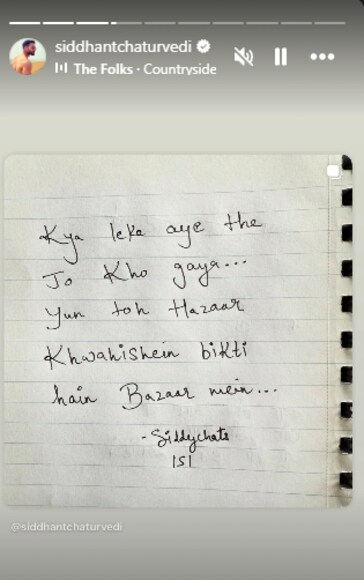 siddhantchaturvedi
The Folks · Countryside
Kya leke aye the
Jo Kho gaya...
Yun toh Hazaar
Khwahishein bikti
hain Bazaar mein...
- Siddychats
151
@siddhantchaturvedi